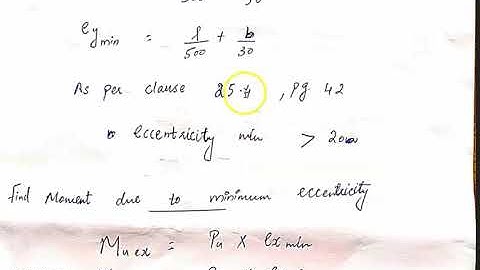 500 30
e_y min = l/500 + b/30
As per clause 25.4, Pg 42
eccentricity min > 20
Find Moment due to minimum eccentricity
Mu ex = Pu x ex min